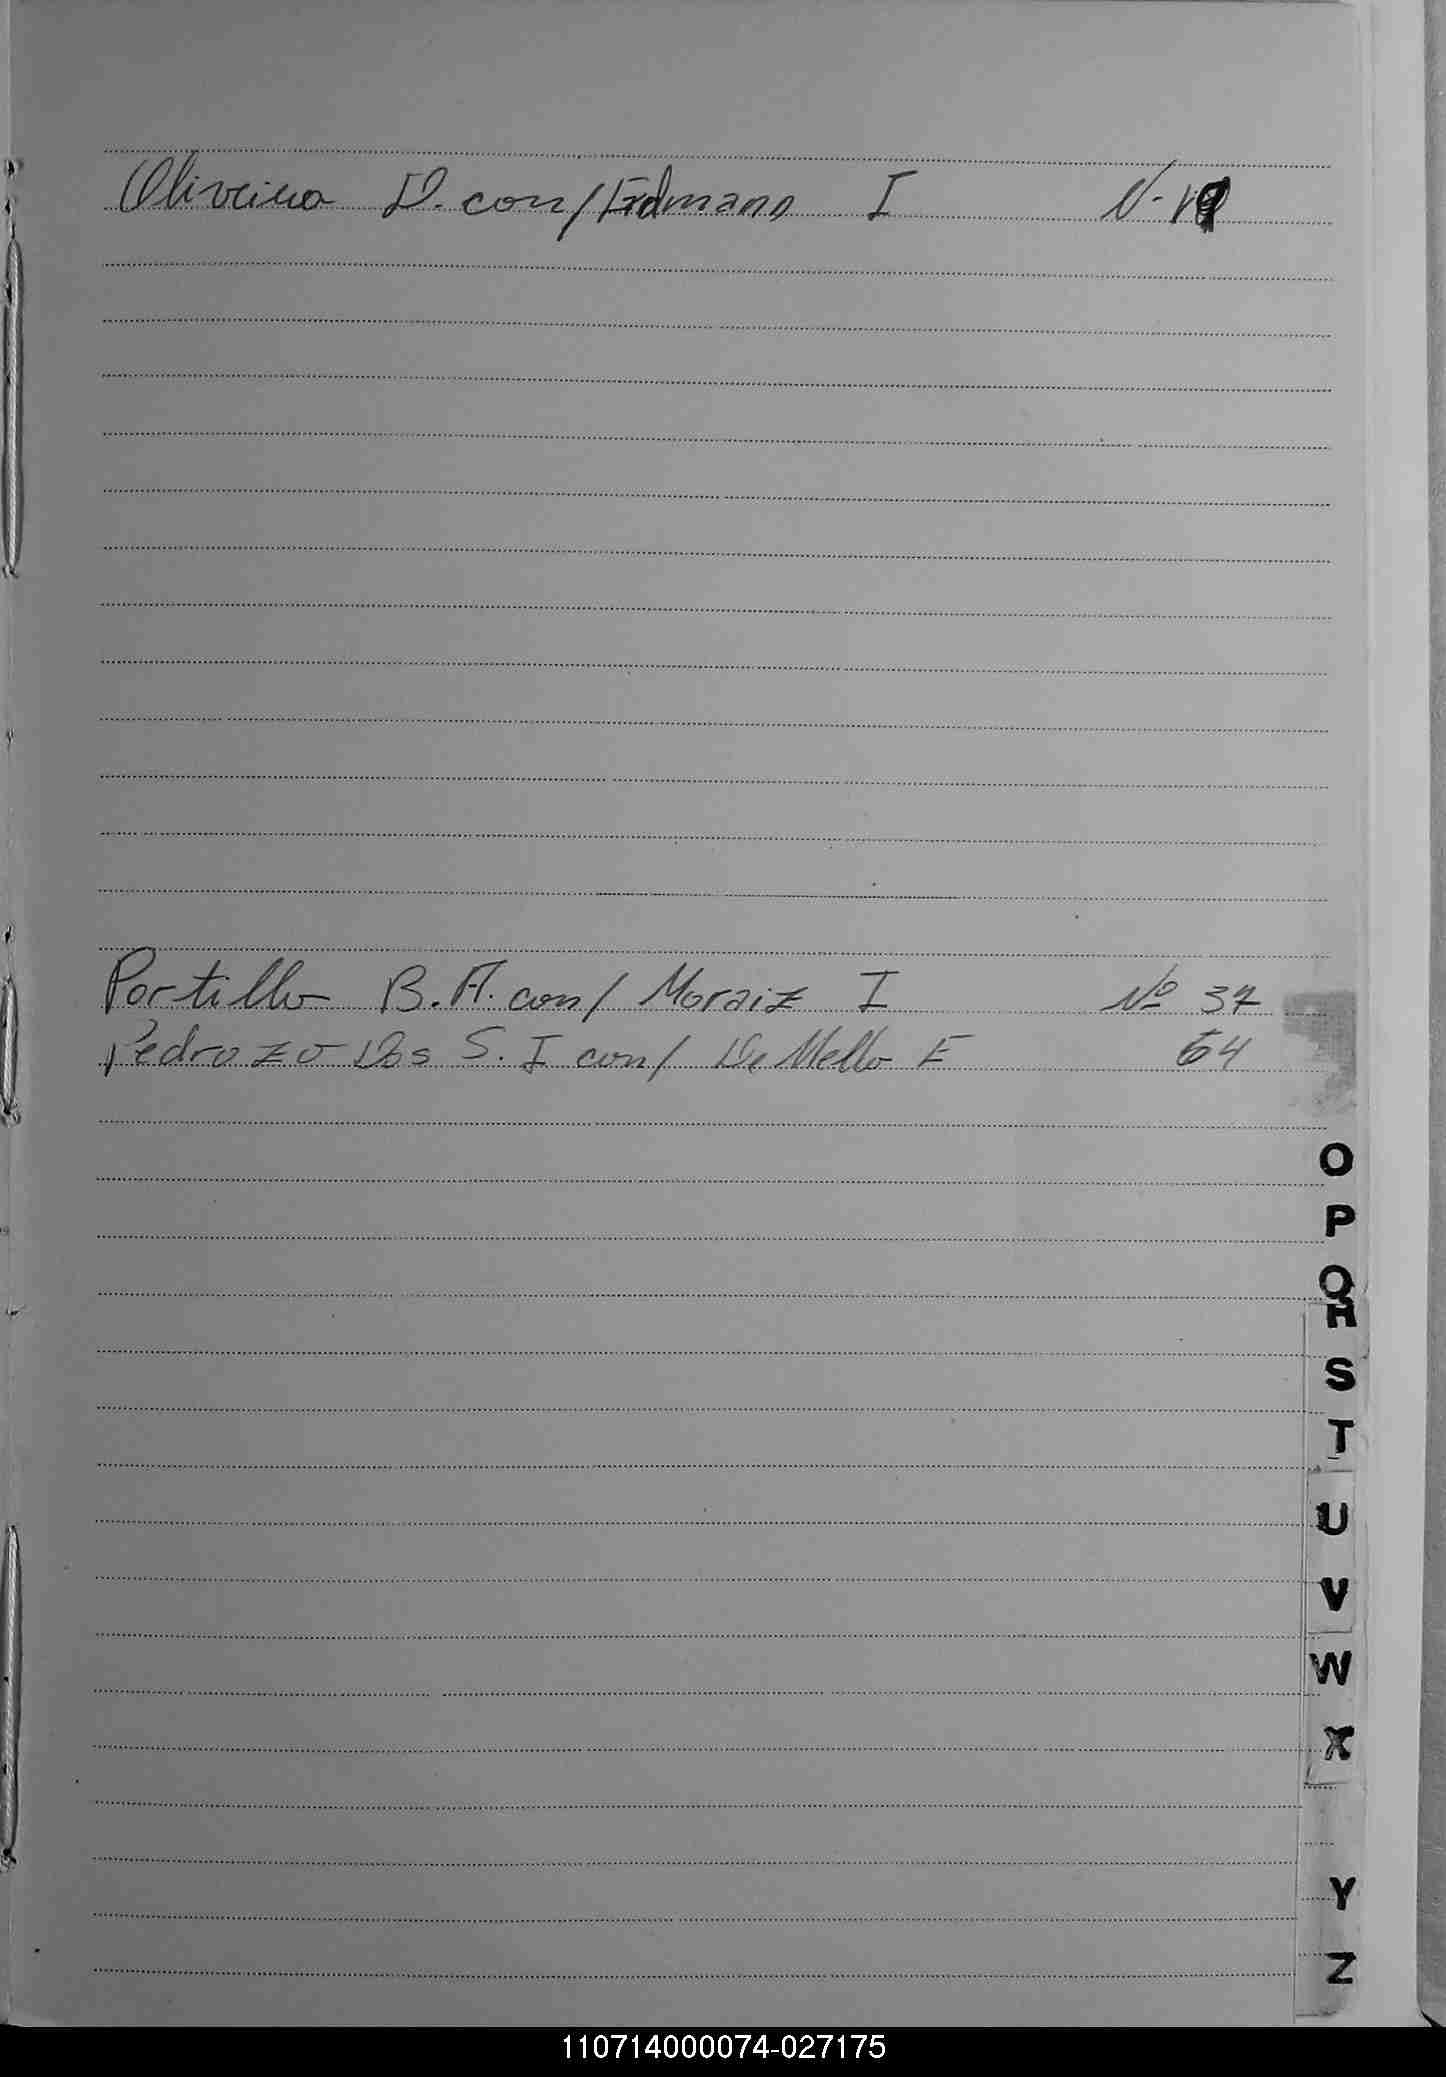 Oliveira D. con/ Erdmann I N-19
Portillo B.A. con/ Moraiz I Nº 37
Pedrozo Dos S. I con/ De Mello E 64
O
P
Q
R
S
T
U
V
W
X
Y
Z
110714000074-027175